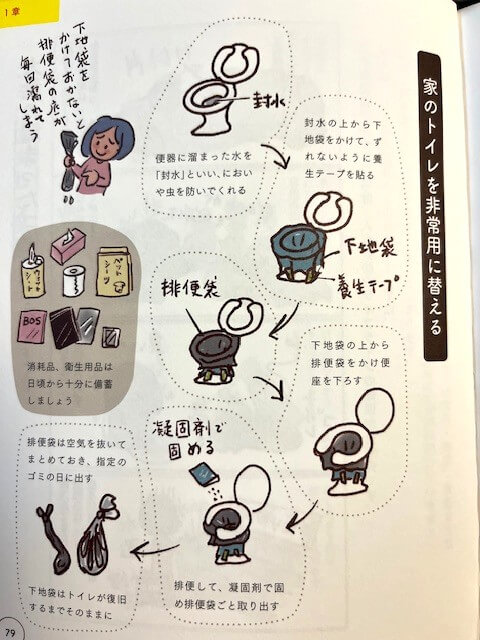 1章
家のトイレを非常用に替える
封水
便器に溜まった水を
「封水」といい、におい
や虫を防いでくれる
封水の上から下
地袋をかけて、ず
れないように養
生テープを貼る
下地袋
養生テープ
排便袋
下地袋の上から
排便袋をかけ便
座を下ろす
凝固剤で
固める
排便して、凝固剤で固
め排便袋ごと取り出す
排便袋は空気を抜いて
まとめておき、指定の
ゴミの日に出す
下地袋はトイレが復旧
するまでそのままに
下地袋を
かけておかないと
排便袋の底が
毎回濡れて
しまう
ウェットシート
ペットシーツ
BOS
消耗品、衛生用品は
日頃から十分に備蓄
しましょう
79